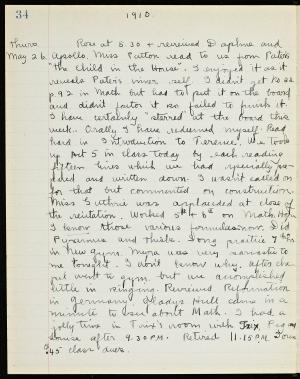 34
1910.
Thurs. Rose at 5.30 + reviewed Daphne and
May 26. Apollo. Miss Patton read to us from Pater's
"The Child in the House". I enjoyed it as it
reveals Pater's inner self. I didn't get
p. 92 in Math but had to put it on the board
and didn't factor it so failed to finish it.
I have certainly "starred" at the board this
week. Orally I have redeemed myself. Read
hard in Introduction to Terence. We took
up Act 5 in class today by each reading
fifteen lines which we had specially
and written down. I wasn't called on
for that but commented on construction.
Miss Guthrie was applauded at close of
the recitation. Worked 5th + 6th on Math. Hope
I know those various formulas now. Did
Pyramus and Thisbe. Song practice 7th
in new gym. Myra was very sarcastic to
me tonight. I don't know why. After
went to gym. but we accomplished
little in singing. Reviewed Reformation
in Germany. Gladys Hull came in a
minute to see about Math. I had a
jolly time in Trix's room with Trix, Peg
Louise after 9.30 P.M. Retired 11.15 P.M.
$45 class dues.